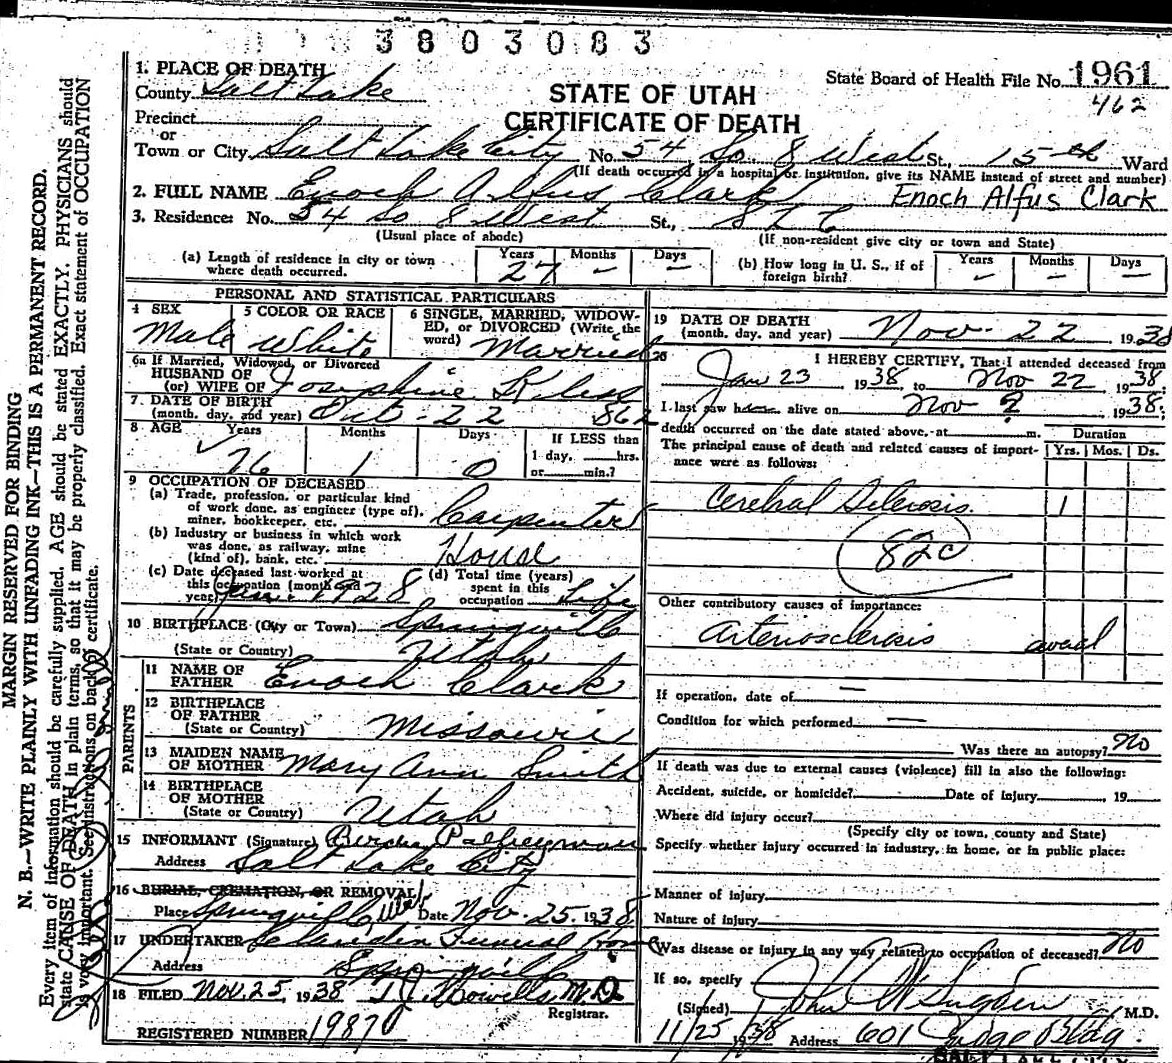 3803083
1. PLACE OF DEATH
County Salt Lake
State Board of Health File No. 1961
462
STATE OF UTAH
CERTIFICATE OF DEATH
Precinct
or
Town or City Salt Lake City No. 54 So 8 West St., 15th Ward
(If death occurred in a hospital or institution, give its NAME instead of street and number)
2. FULL NAME Enoch Alfus Clark Enoch Alfus Clark
3. Residence: No. 54 So 8 West St., SLC
(Usual place of abode) (If non-resident give city or town and State)
(a) Length of residence in city or town where death occurred. Years 27 Months – Days –
(b) How long in U. S., if of foreign birth? Years – Months – Days –
PERSONAL AND STATISTICAL PARTICULARS
4 SEX Male
5 COLOR OR RACE White
6 SINGLE, MARRIED, WIDOWED, or DIVORCED (Write the word) Married
6a If Married, Widowed, or Divorced
HUSBAND OF
(or) WIFE OF Josephine
7 DATE OF BIRTH
(month, day, and year) Oct - 22 862
8 AGE Years 76 Months 1 Days 0 If LESS than 1 day, hrs. or min.?
9 OCCUPATION OF DECEASED
(a) Trade, profession, or particular kind of work done, as engineer (type of), miner, bookkeeper, etc. Carpenter
(b) Industry or business in which work was done, as railway, mine (kind of), bank, etc. House
(c) Date deceased last worked at this occupation (month and year) 1928
(d) Total time (years) spent in this occupation Life
10 BIRTHPLACE (City or Town) Springville
(State or Country) Utah
PARENTS
11 NAME OF FATHER Enoch Clark
12 BIRTHPLACE OF FATHER (State or Country) Missouri
13 MAIDEN NAME OF MOTHER Mary Ann Smith
14 BIRTHPLACE OF MOTHER (State or Country) Utah
15 INFORMANT (Signature) Palfreyman
Address Salt Lake City
16 BURIAL, CREMATION, OR REMOVAL
Place Springville Utah Date Nov. 25 1938
17 UNDERTAKER Claudin Funeral Home
Address Springville
18 FILED Nov. 25, 1938 M.D.
Registrar.
REGISTERED NUMBER 1987
19 DATE OF DEATH
(month, day, and year) Nov - 22 1938
20 I HEREBY CERTIFY, That I attended deceased from
Jan 23 1938, to Nov 22 1938
I last saw h alive on Nov ? 1938;
death occurred on the date stated above, at m.
The principal cause of death and related causes of importance were as follows:
Duration
Yrs. Mos. Ds.
Cerebral Sclerosis. 1
82c
Other contributory causes of importance:
Arteriosclerosis
If operation, date of —
Condition for which performed —
Was there an autopsy? No
If death was due to external causes (violence) fill in also the following:
Accident, suicide, or homicide? Date of injury 19
Where did injury occur?
(Specify city or town, county and State)
Specify whether injury occurred in industry, in home, or in public place:
Manner of injury
Nature of injury
Was disease or injury in any way related to occupation of deceased? No
If so, specify
(Signed) John W Sugden M.D.
11/25 1938 Address 601 Judge Bldg.
SALT LAKE CITY
MARGIN RESERVED FOR BINDING
N. B.—WRITE PLAINLY WITH UNFADING INK—THIS IS A PERMANENT RECORD.
Every item of information should be carefully supplied. AGE should be stated EXACTLY. PHYSICIANS should
state CAUSE OF DEATH in plain terms, so that it may be properly classified. Exact statement of OCCUPATION
is very important. See instructions on back of certificate.